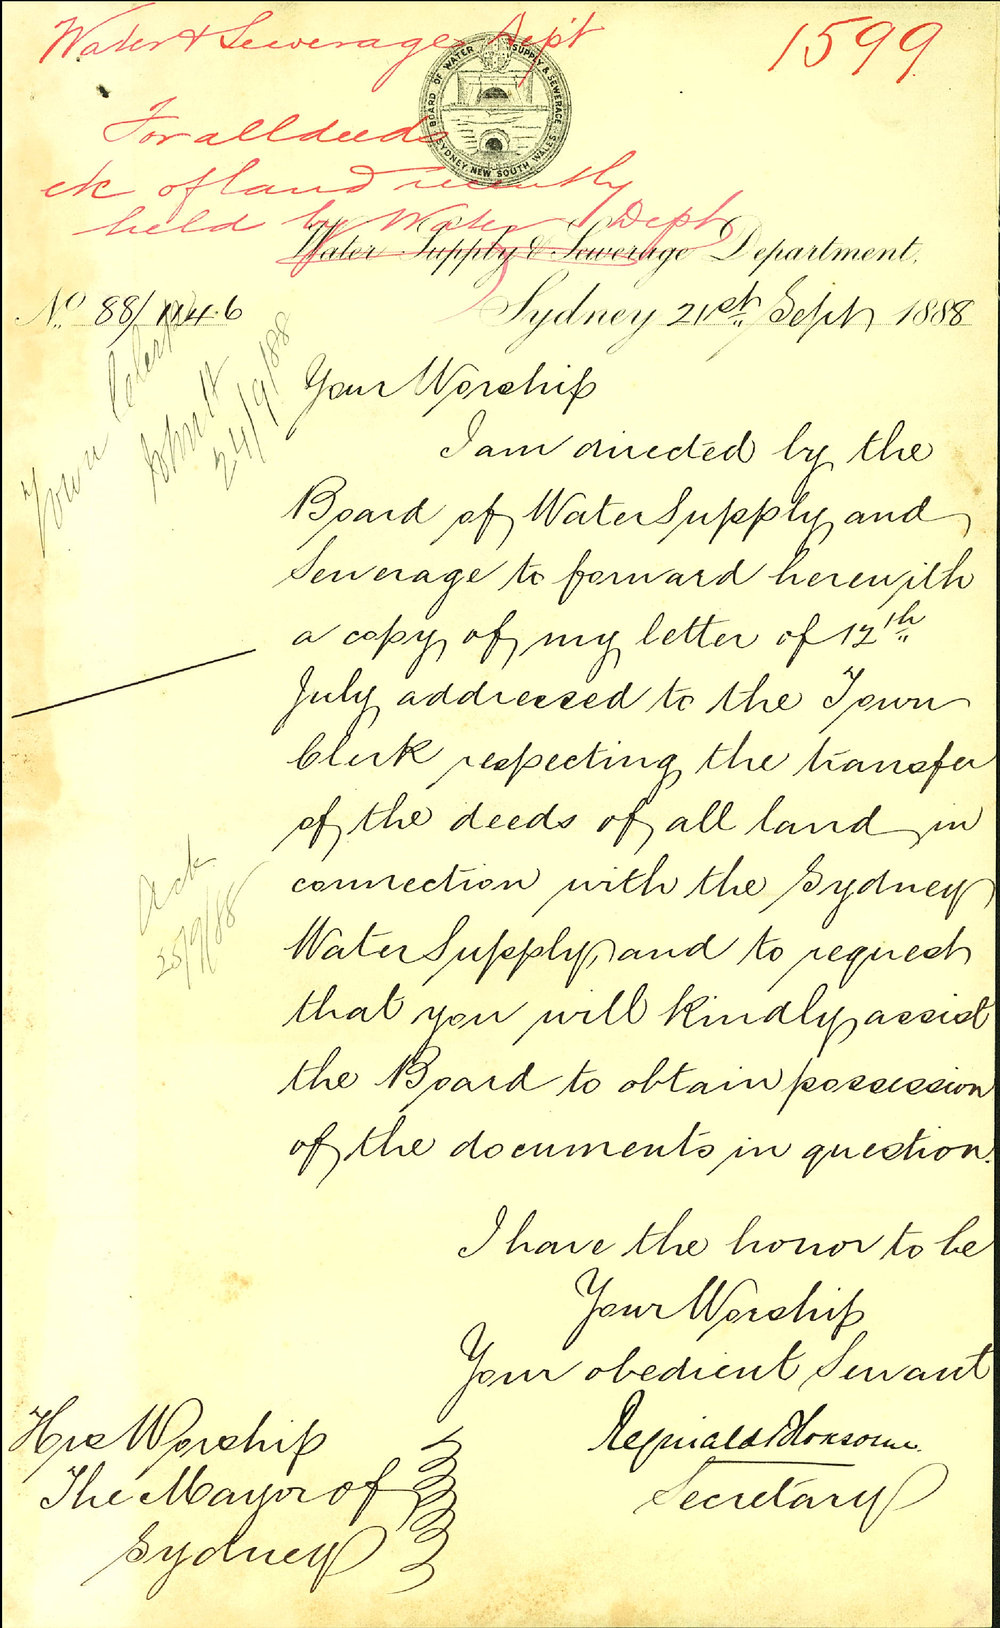 Water & Sewerage Dept
1599
BOARD OF WATER SUPPLY & SEWERAGE
SYDNEY, NEW SOUTH WALES
For all deeds
etc of land recently
held by Water Dept
Water Supply & Sewerage Department,
No. 88/
Sydney 21st Sept 1888
Town Clerk
24/9/88
Your Worship
I am directed by the
Board of Water Supply and
Sewerage to forward herewith
a copy of my letter of 12th
July addressed to the Town
Clerk respecting the transfer
of the deeds of all land in
connection with the Sydney
Water Supply, and to request
that you will kindly assist
the Board to obtain possession
of the documents in question.
Ack
25/9/88
I have the honor to be
Your Worship
Your obedient Servant
Reginald
Secretary
His Worship
The Mayor of
Sydney